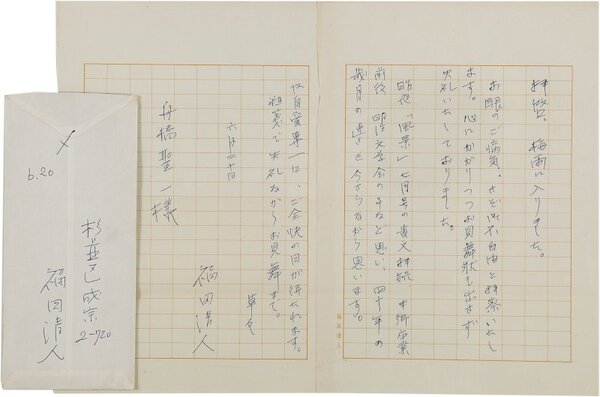 拝啓。 梅雨に入りました。
お眼のご病気、さぞ御不自由と拝察いたし
ます。心にかかりつつお見舞状も出さず
失礼いたしておりました。
「風景」七月号の貴文拝読
前後 明治文学会の など思い、四十年の
歳月の速さを今さらながら思います。
福田清人
御自愛専一に、ご全快の日が待たれます。
粗箋で失礼ながらお見舞まで。
草々
六月二十日
福田清人
舟橋聖一様
〆
6.20
杉並区成宗
2-720
福田清人